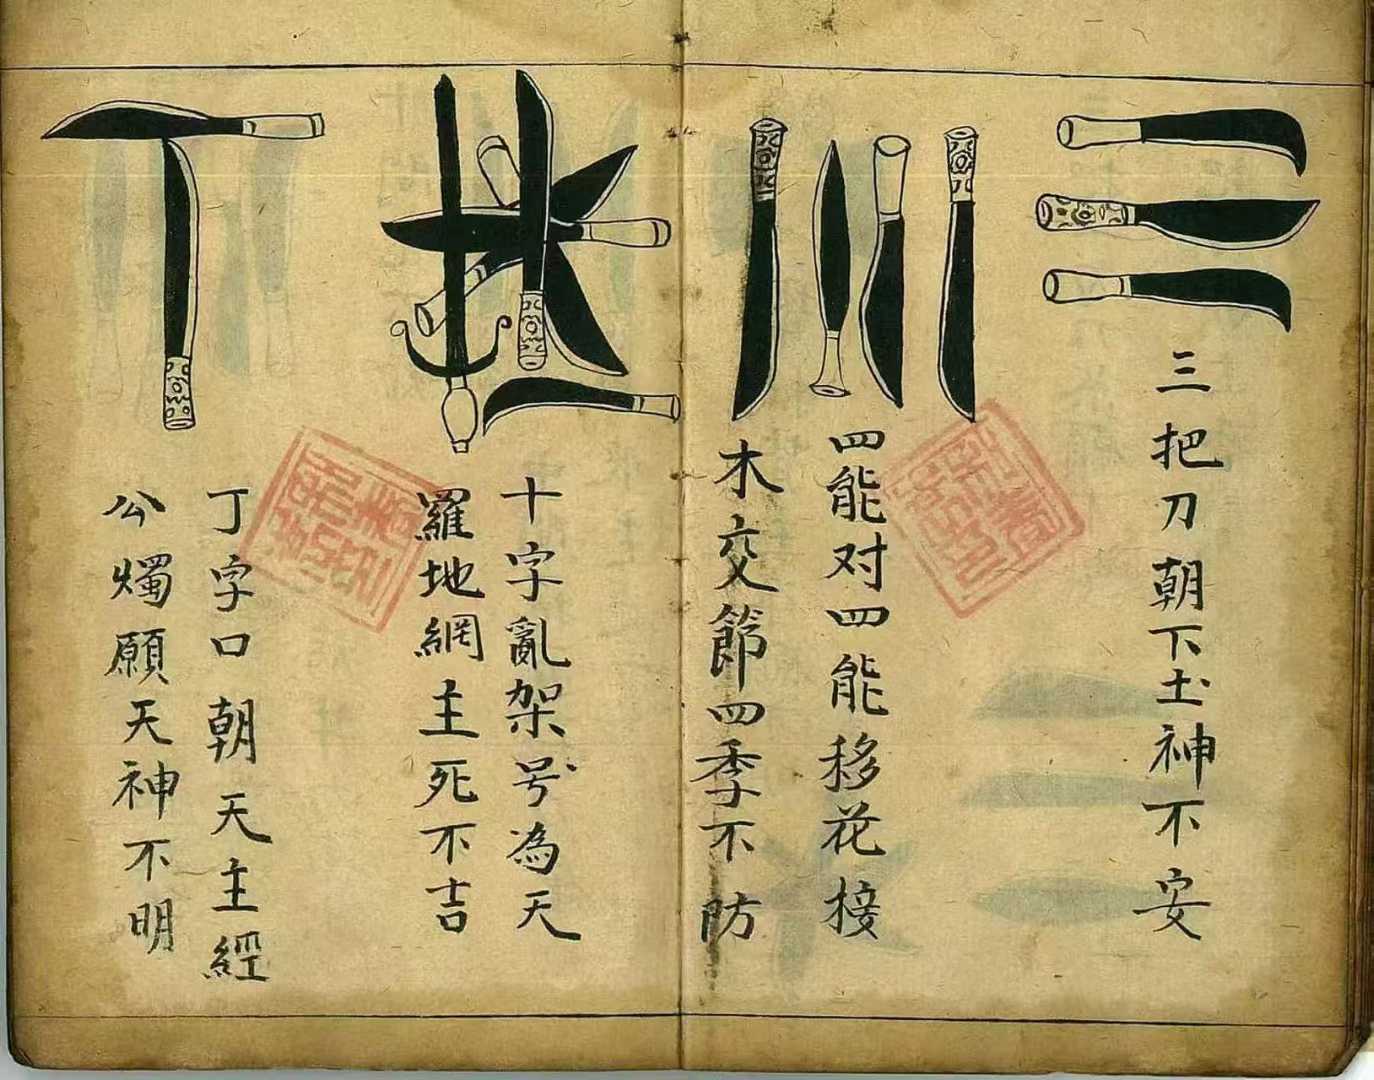 三把刀朝下𡈽神不安
四能对四能移花接
木交節四季不防
十字亂架号為天
羅地網主死不吉
丁字口朝天主經
公燭願天神不明